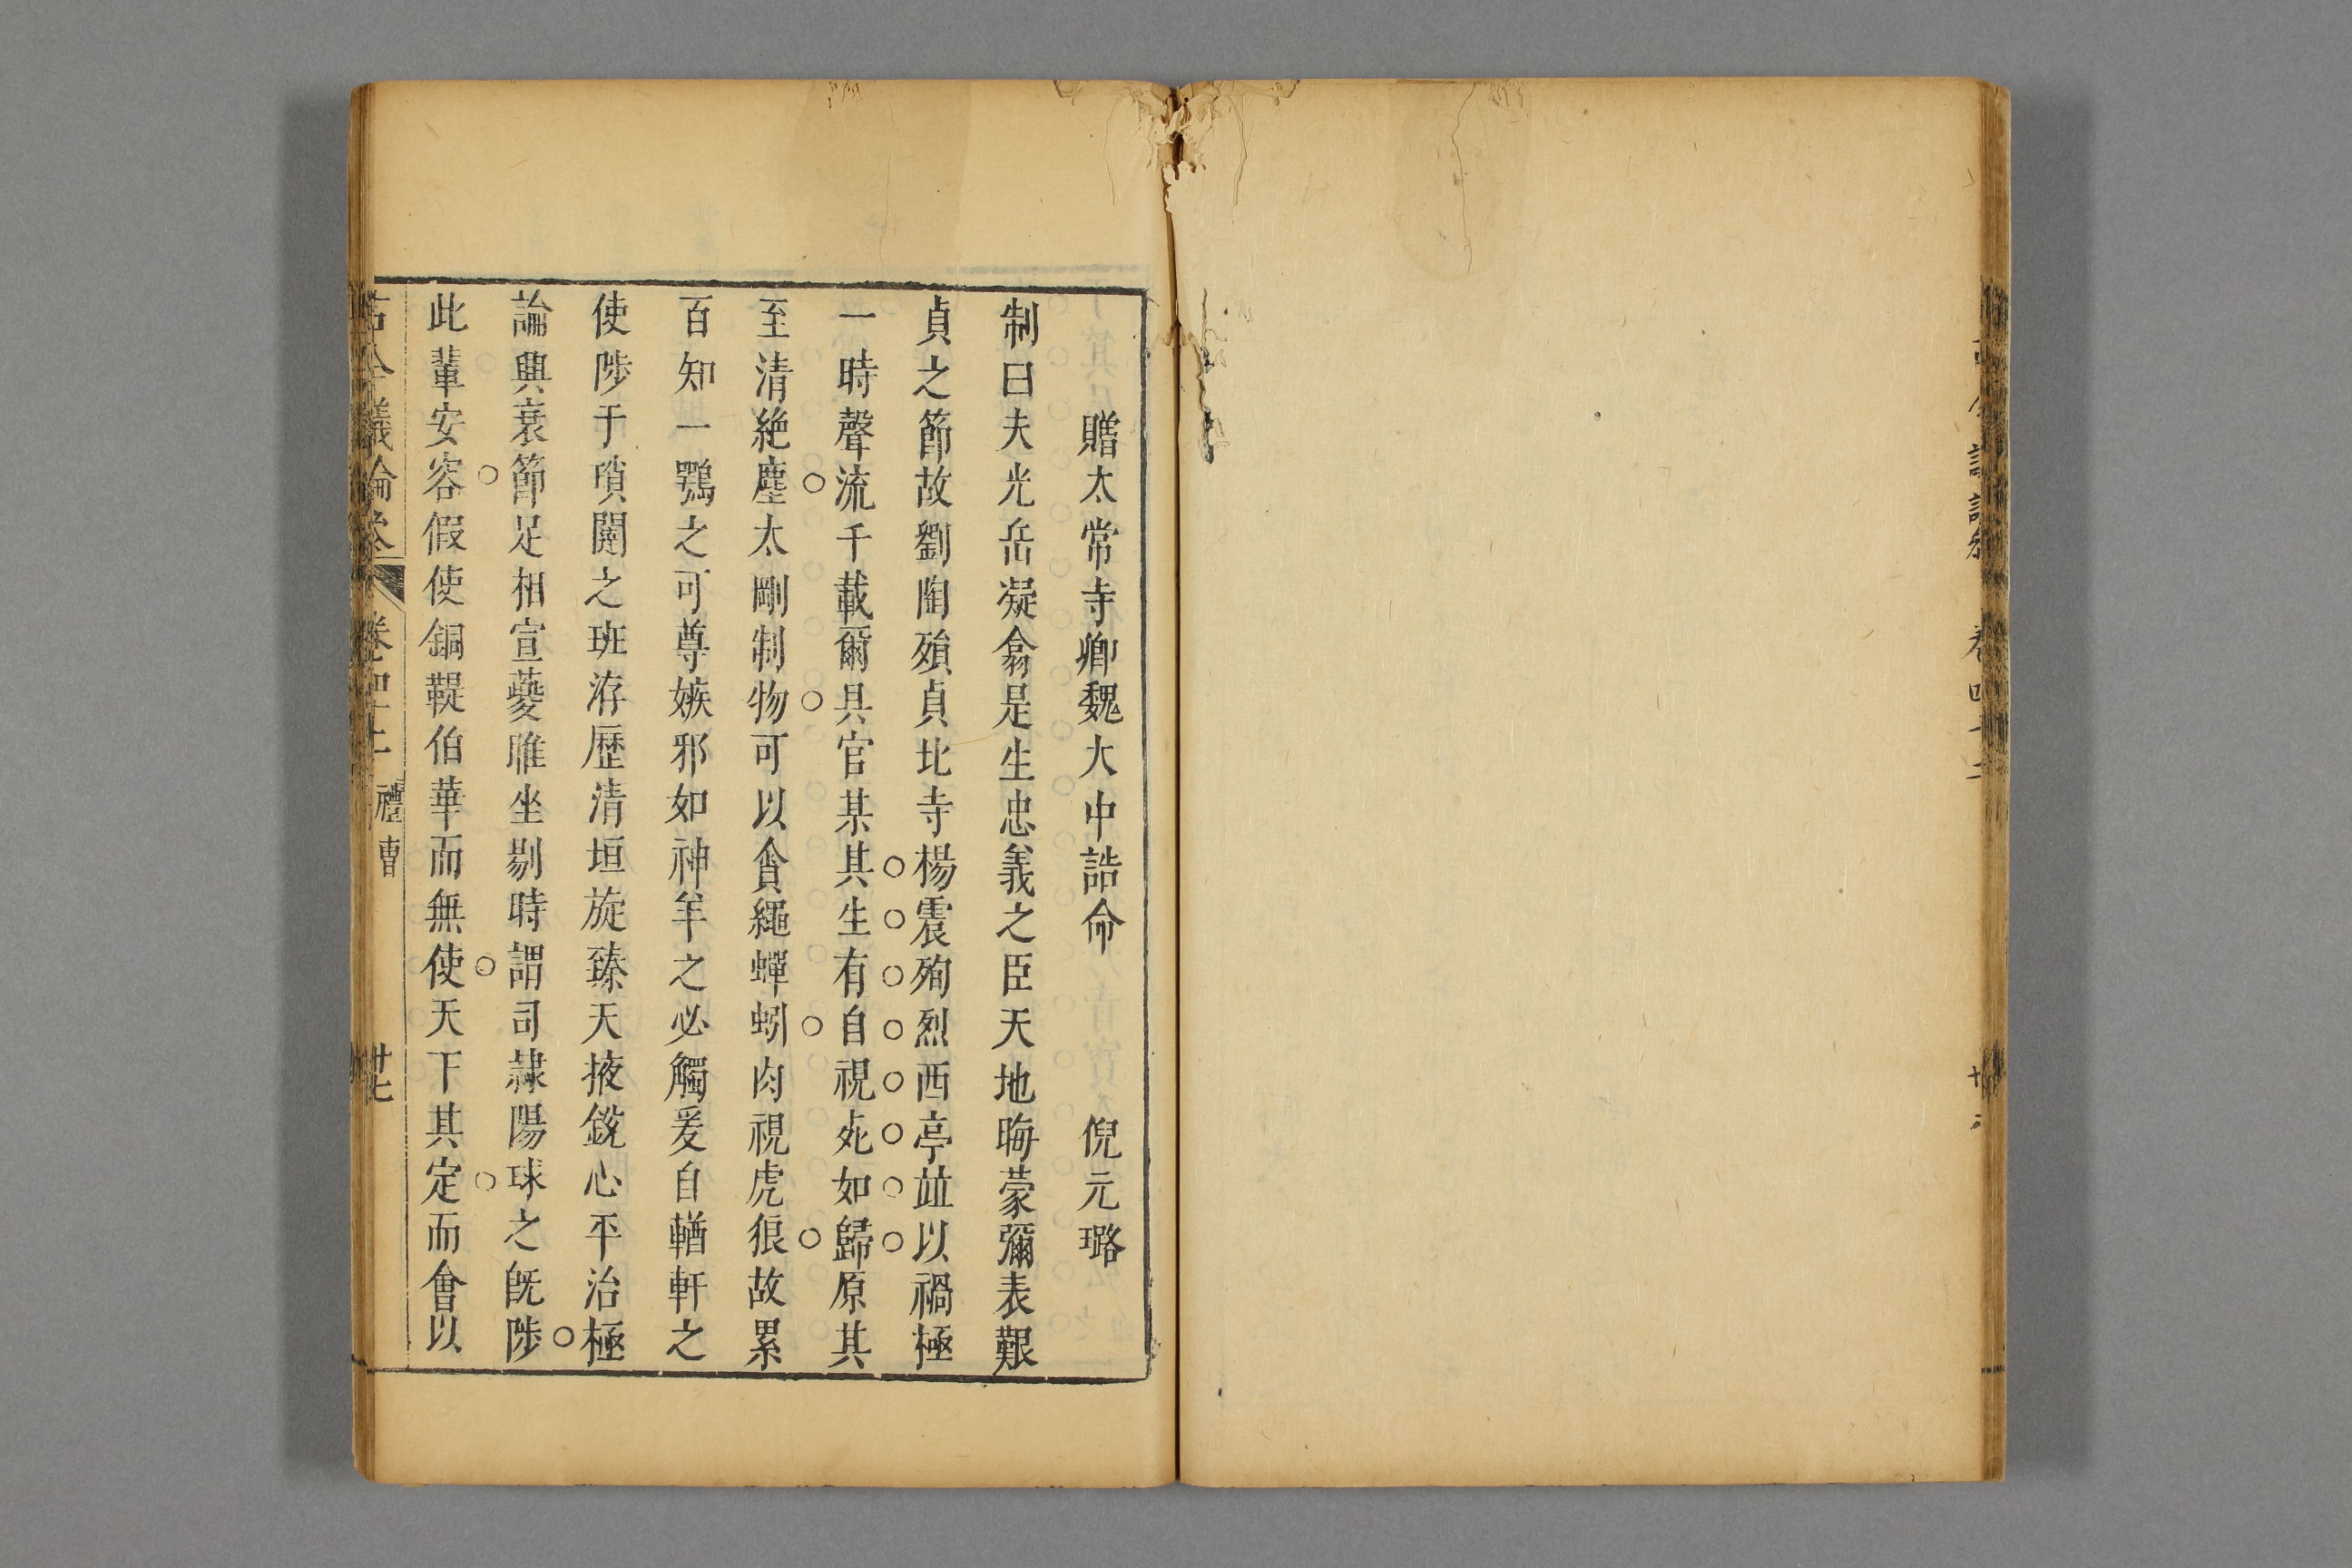 贈太常寺卿魏大中誥命　倪元璐
制曰夫光岳凝翕是生忠義之臣天地晦蒙彌表艱
貞之節故劉陶殞貞北寺楊震殉烈西亭並以禍極
一時聲流千載爾具官某其生有自視死如歸原其
至清絶塵太剛制物可以貪繩蟬蚓肉視虎狼故累
百知一鶚之可尊嫉邪如神羊之必觸爰自輶軒之
使陟于𤨏闥之班洊歷清垣旋臻天掖銳心平治極
論興衰節足相宣蘷雎坐剔時謂司隷陽球之旣陟
此輩安容假使銅鞮伯華而無使天下其定而會以
古今議論叅 卷四十二 禮曹 廿七